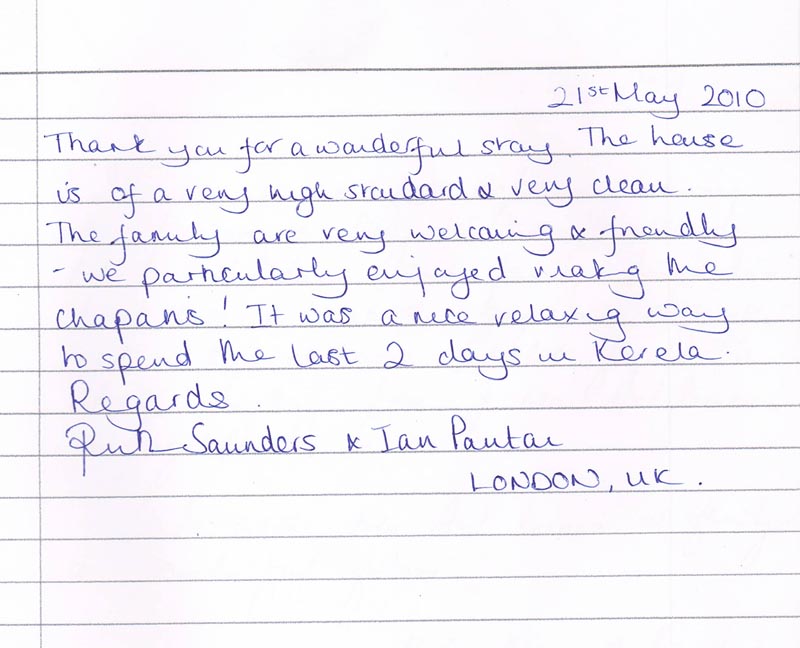 21st May 2010
Thank you for a wonderful stay. The house
is of a very high standard & very clean.
The family are very welcoming & friendly
- we particularly enjoyed making the
chapatis! It was a nice relaxing way
to spend the last 2 days in Kerela.
Regards.
Ruth Saunders & Ian
LONDON, UK.